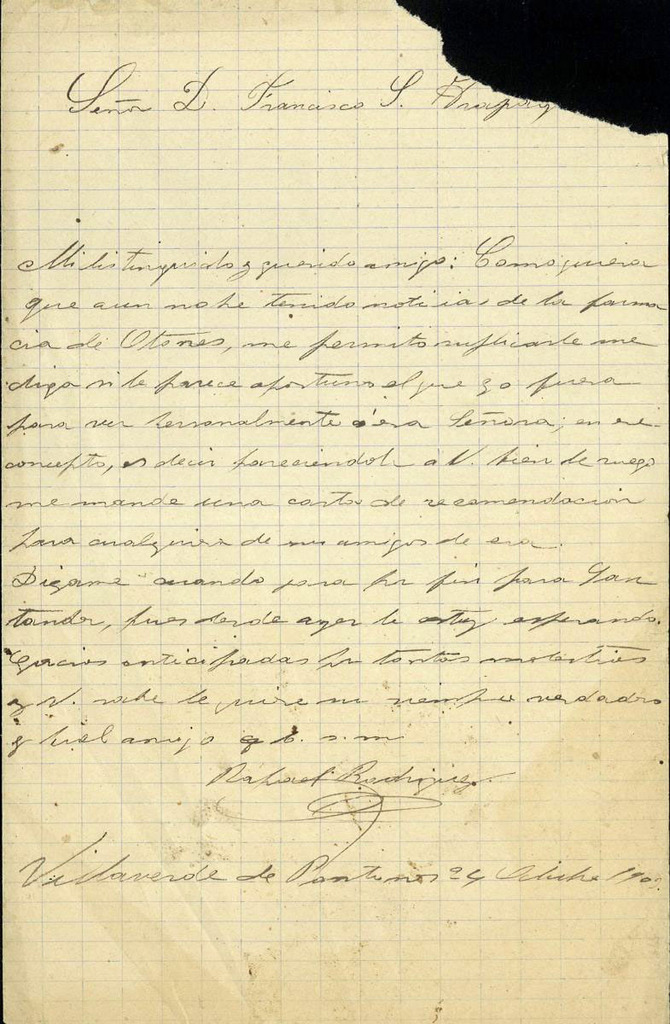 Señor D. Francisco S.
Mi distinguido y querido amigo: Como quiera
que aun no he tenido noticias de la farma
cia de Otones, me permito suplicarle me
diga si le parece oportuno el que yo fuera
para ver personalmente á esa Señora; en ese
concepto, es decir pareciendole a V. bien le ruego
me mande una carta de recomendación
para cualquiera de sus amigos de esa.
Digame cuando pasa por fin para San
tander, pues desde ayer le estoy esperando.
Gracias anticipadas por tantas molestias
y V. sabe le quiere su siempre verdadero
y fiel amigo q b. s. m
Rafael Rodriguez
Villaverde de Pontones 24 Octubre